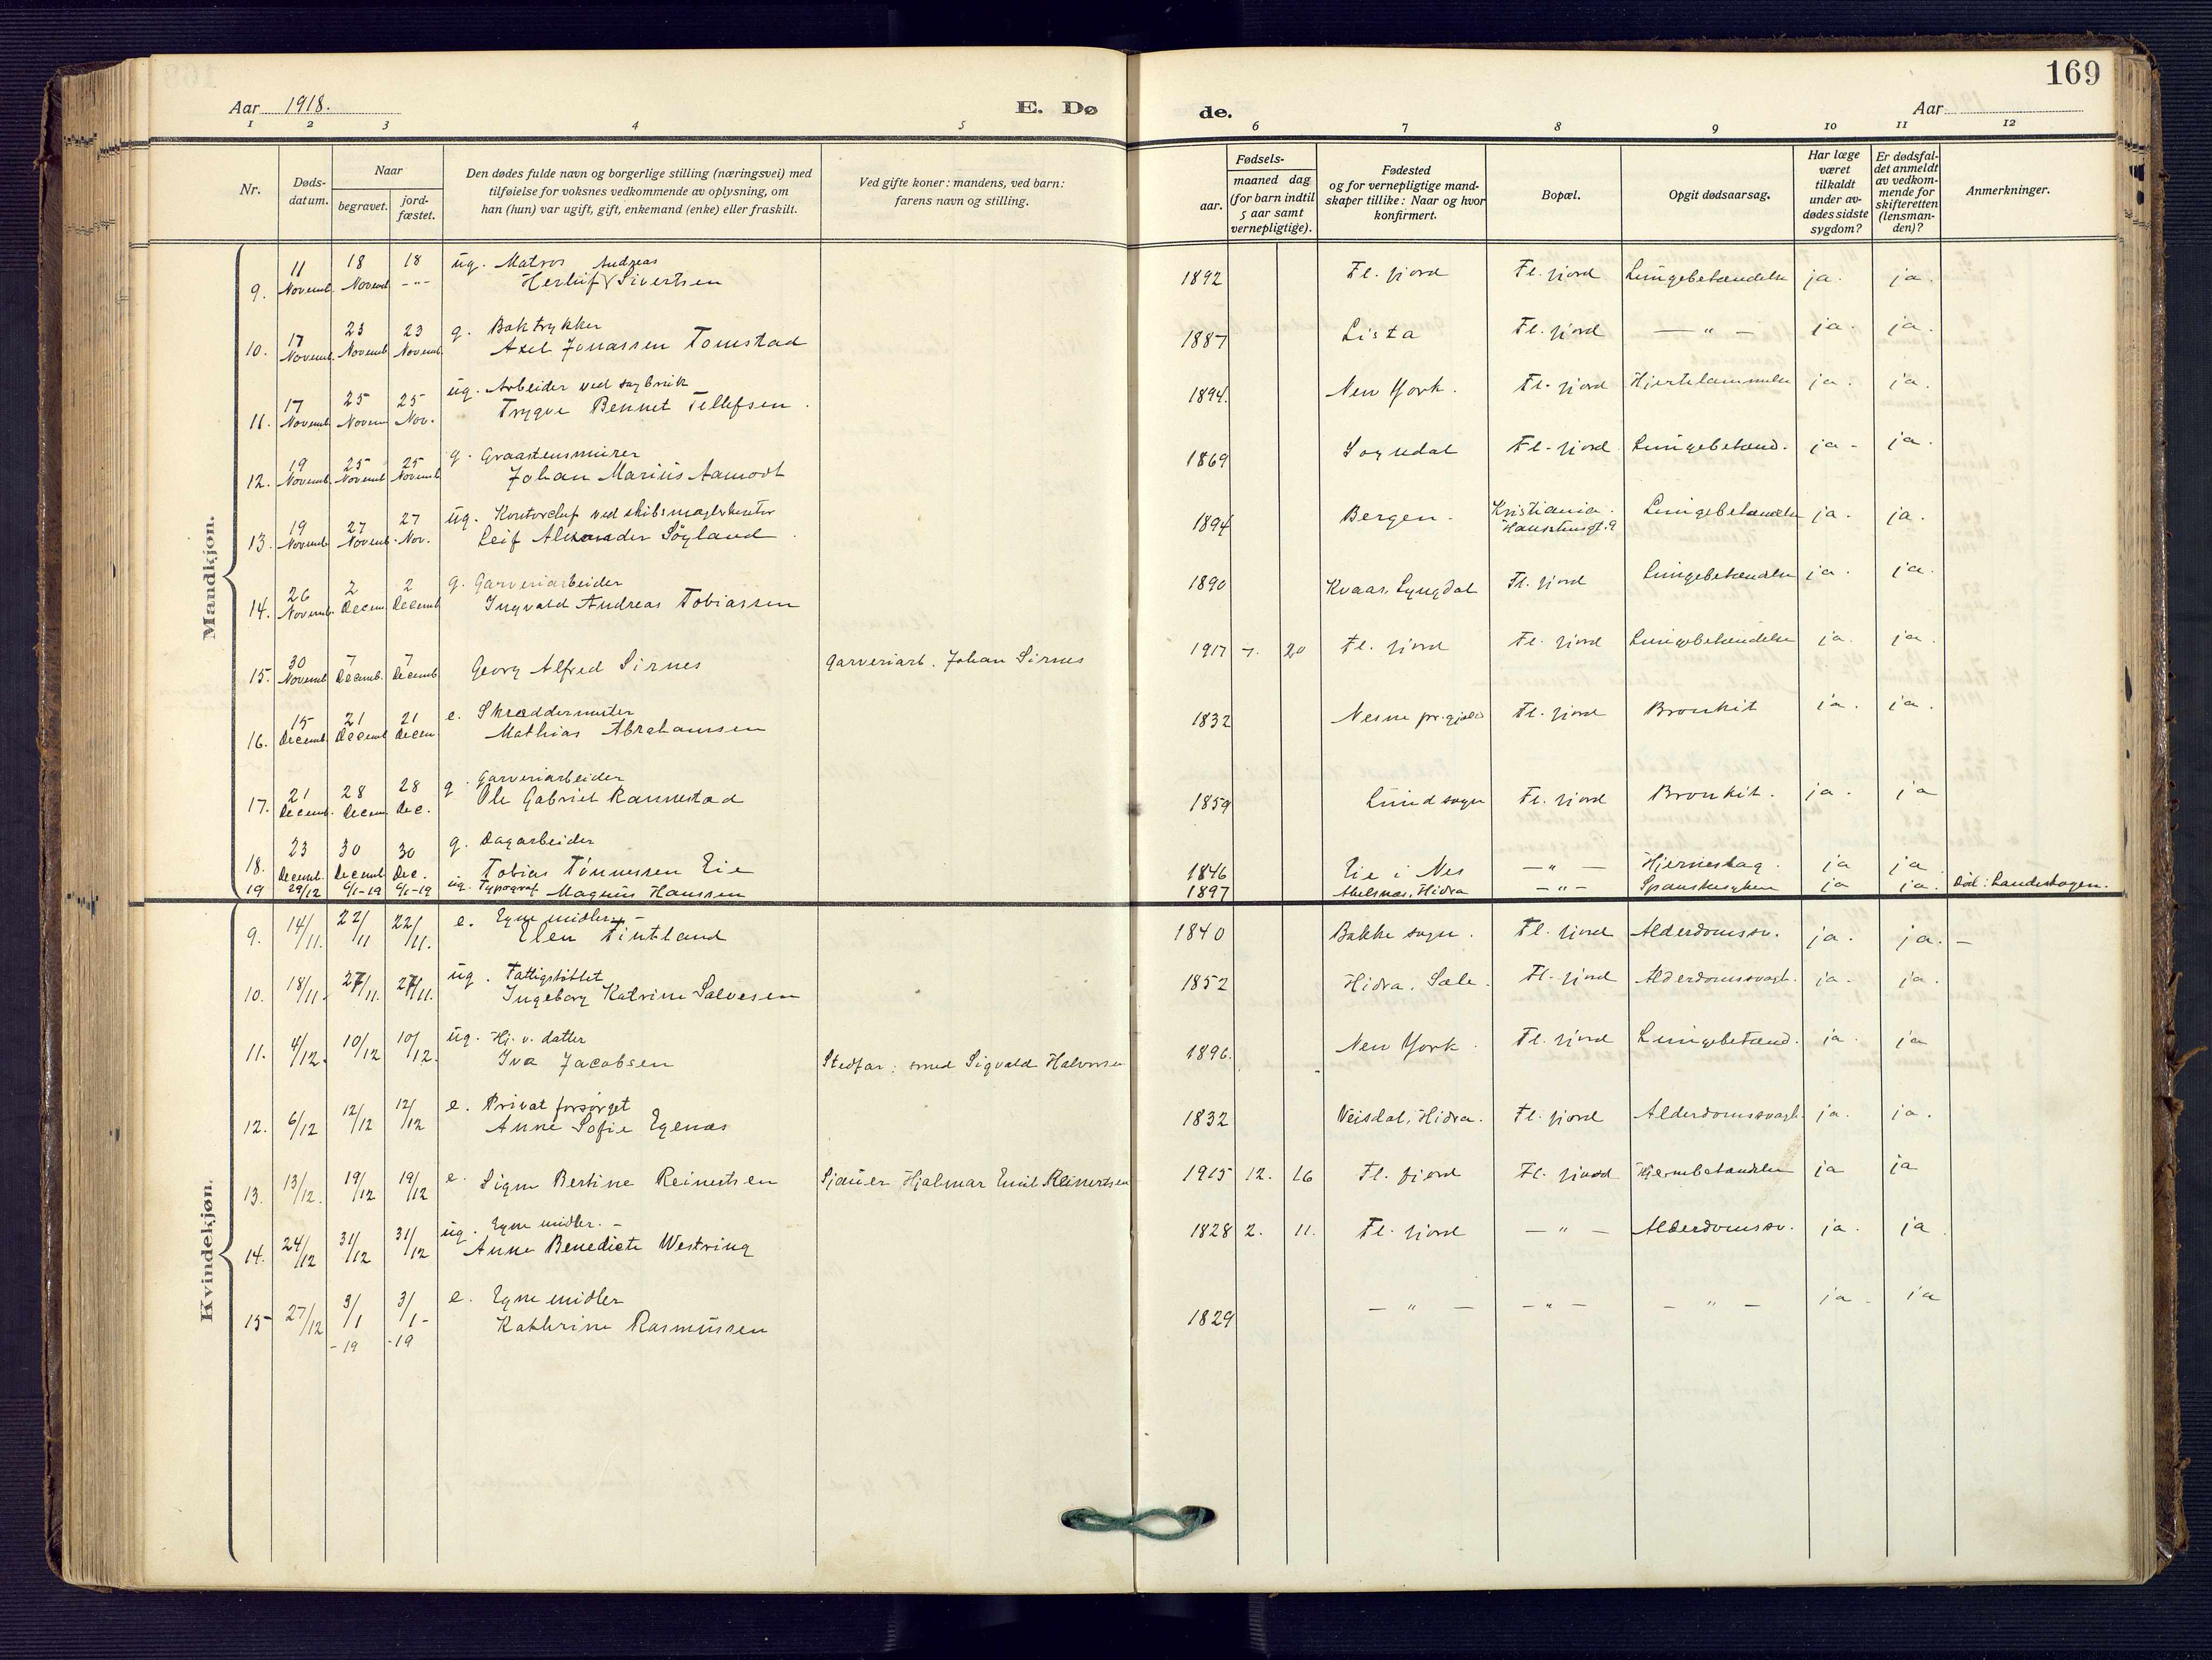 169
Aar 1918.
E. Dø
de.
Aar
1 2 3 4 5 6 7 8 9 10 11 12
Nr.
Døds-
datum.
Naar
begravet.
jord-
fæstet.
Den dødes fulde navn og borgerlige stilling (næringsvei) med
tilføielse for voksnes vedkommende av oplysning, om
han (hun) var ugift, gift, enkemand (enke) eller fraskilt.
Ved gifte koner: mandens, ved barn:
farens navn og stilling.
Fødsels-
aar.
maaned dag
(for barn indtil
5 aar samt
vernepligtige).
Fødested
og for vernepligtige mand-
skaper tillike: Naar og hvor
konfirmert.
Bopæl.
Opgit dødsaarsag.
Har læge
været
tilkaldt
under av-
dødes sidste
sygdom?
Er dødsfal-
det anmeldt
av vedkom-
mende for
skifteretten
(lensman-
den)?
Anmerkninger.
Mandkjøn.
11 18 18 ug. Matros Andreas
9. Novemb. Novemb -"- Herluf Sivertsen 1892 Fl. fjord Fl. fjord Lungebetændelse ja. ja.
17 23 23 g. Boktrykker
10. Novemb. Novemb Novemb. Axel Jonassen Tomstad 1887 Lista Fl. fjord — " — ja. ja.
17 25 25 ug. Arbeider ved sagbruk
11. Novemb. Novem Nov. Trygve Bennet Tellefsen. 1894. New York. Fl. fjord Hjertelammelse ja. ja.
19 25 25 g. Graastensmurer
12. Novemb. Novemb Novemb Johan Marius Aamodt 1869 Sogndal Fl. fjord Lungebetænd. ja - ja.
19 27 27 ug. Kontorchef ved skibsmæglerkontor
13. Novemb Novemb. Nov. Leif Alexander Søyland. 1894 Bergen. Kristiania. Lungebetændelse ja. ja.
26 2 2 g. Garveriarbeider
14. Novemb. Decem. Decemb Ingvald Andreas Tobiassen 1890 Kvaas, Lyngdal Fl. fjord Lungebetændelse ja. ja.
30 7 7
15. Novemb Decemb. Decemb Georg Alfred Sirnes Garveriarb. Johan Sirnes 1917 7. 20 Fl. fjord Fl. fjord Lungebetændelse ja. ja.
15 21 21 e. Skræddermester
16. Decemb. Decemb Decem. Mathias Abrahamsen 1832 Nesne pr.gjeld Fl. fjord Bronkit ja. ja.
21 28 28 g. Garveriarbeider
17. Decemb. Decem. Dec. Ole Gabriel Rannestad 1859 Lund sogn Fl. fjord Bronkit. ja. ja
23 30 30 g. Dagarbeider
18. Decemb. Decemb Dec. Tobias Tønnessen Eie 1846 Eie i Nes — " — Hjerneslag. ja ja
19 29/12 6/1-19 6/1-19 ug. Typograf Magnus Hanssen 1897 Abelsnes, Hidra — " — Spanskesyken ja ja. Død: Landeskogen.
Kvindekjøn.
9. 14/11. 22/11 22/11. e. Egne midler. -
Elen Fintland 1840 Bakke sogn. Fl. fjord Alderdomssv. ja. ja. —
10. 18/11. 27/11. 27/11. ug. Fattigstøttet
Ingeborg Katrine Salvesen 1852 Hidra, Sæle. Fl. fjord Alderdomssvagh. ja. ja.
11. 4/12. 10/12 10/12. ug. Hj. v. datter
Iva Jacobsen Stedfar: smed Sigvald Halvorsen 1896. New York. Fl. fjord Lungebetænd. ja. ja
12. 6/12 12/12 12/12 e. Privat forsørget
Anne Sofie Egenæs 1832 Veisdal, Hidra. Fl. fjord Alderdomssvagh. ja. ja.
13. 13/12. 19/12 19/12 e. Signe Bertine Reinertsen Sjauer Hjalmar Emil Reinertsen 1915 12. 16 Fl. fjord Fl. fjord Hjernebetændelse ja ja
14. 24/12 31/12 31/12 ug. Egne midler. -
Anne Benedicte Westring 1828 2. 11. Fl. fjord — " — Alderdomssv. ja. ja
15 27/12 3/1 -19 3/1 -19 e. Egne midler
Kathrine Rasmussen 1829 — " — — " — — " — ja - ja